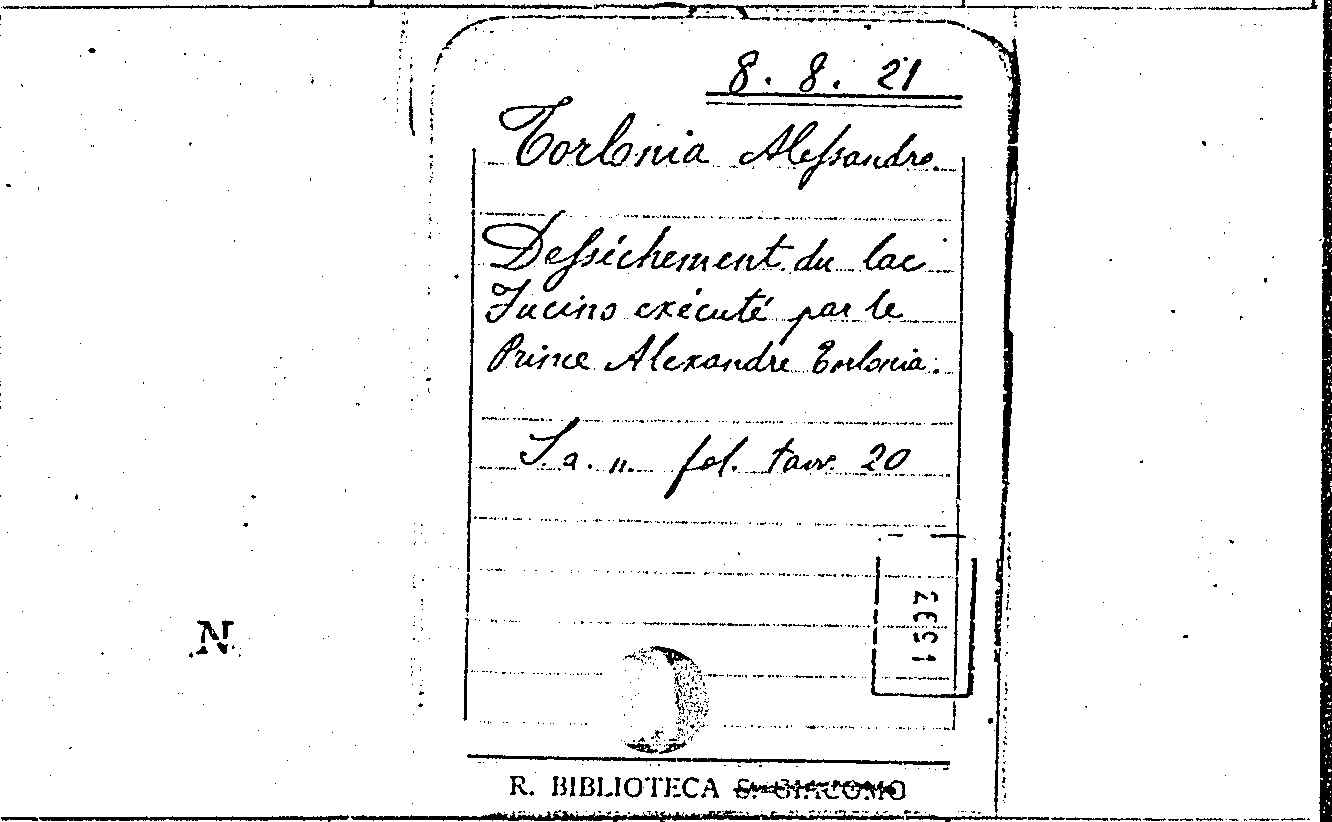 8. 8. 21
Torlonia Alessandro.
Dessèchement du lac
Fucino exécuté par le
Prince Alexandre Torlonia.
S. a. n. fol. tavv. 20
1932
N
R. BIBLIOTECA S. GIACOMO